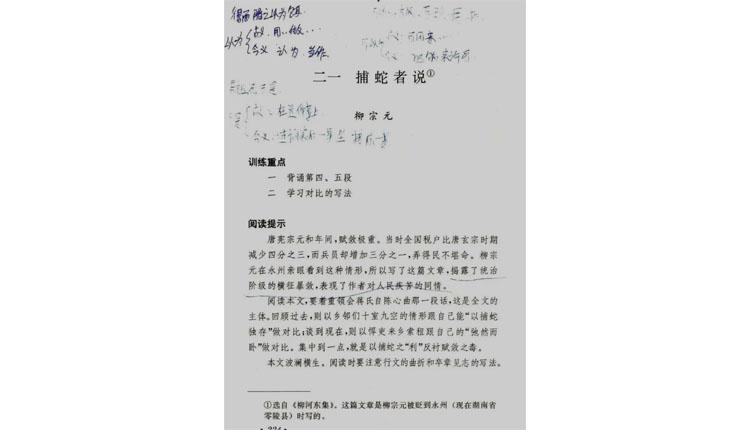 得而腊之以为饵
以为
古义 用…做…
今义 认为、当作
二一 捕蛇者说①
柳宗元
训练重点
一 背诵第四、五段
二 学习对比的写法
阅读提示
唐宪宗元和年间,赋敛极重。当时全国税户比唐玄宗时期
减少四分之三,而兵员却增加三分之一,弄得民不堪命。柳宗
元在永州亲眼看到这种情形,所以写了这篇文章,揭露了统治
阶级的横征暴敛,表现了作者对人民疾苦的同情。
阅读本文,要着重领会蒋氏自陈心曲那一段话,这是全文的
主体。回顾过去,则以乡邻们十室九空的情形跟自己能“以捕蛇
独存”做对比;谈到现在,则以悍吏来乡索租跟自己的“弛然而
卧”做对比。集中到一点,就是以捕蛇之“利”反衬赋敛之毒。
本文波澜横生。阅读时要注意行文的曲折和卒章见志的写法。
①选自《柳河东集》。这篇文章是柳宗元被贬到永州(现在湖南省
零陵县)时写的。